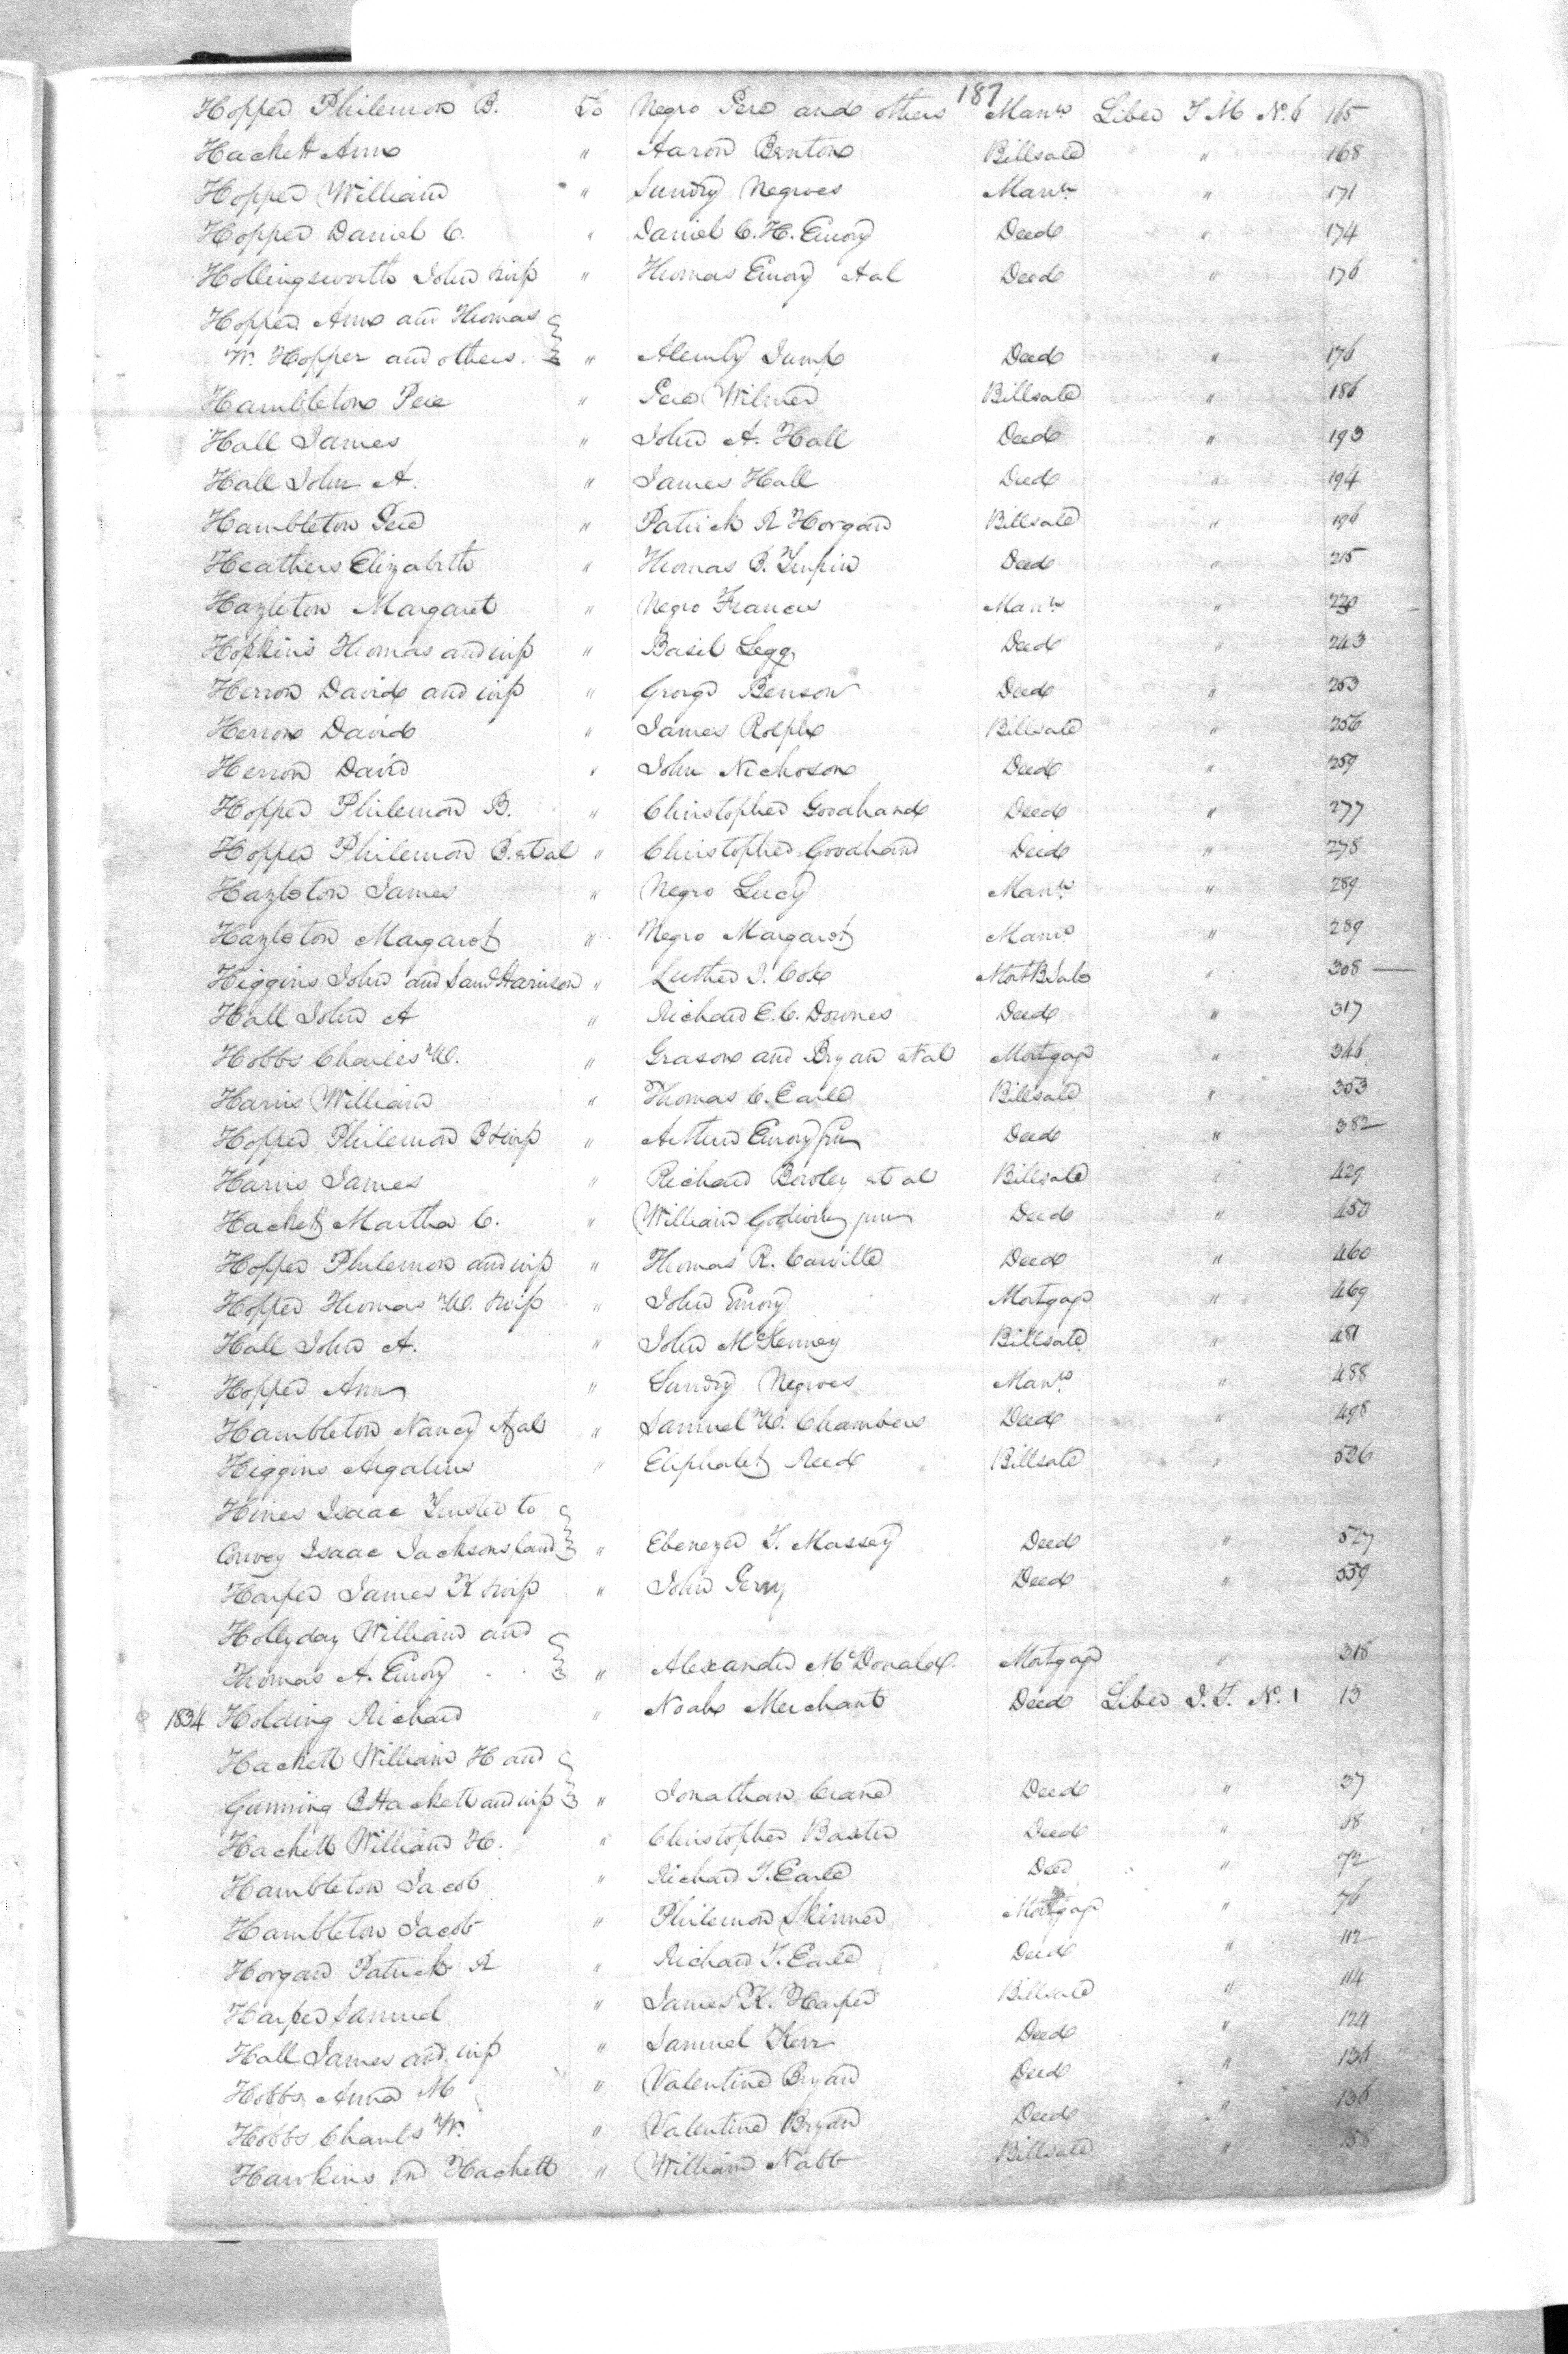 187
Hopper Philemon B. To Negro Pere and others Manⁿ Liber T M No. 6 165
Hackett Ann " Aaron Benton Billsale " 168
Hopper William " Sundry Negroes Manⁿ " 171
Hopper Daniel C. " Daniel C. H. Emory Deed " 174
Hollingsworth John & wife " Thomas Emory et al Deed " 176
Hopper Ann and Thomas
W. Hopper and others. " Alemby Jump Deed " 176
Hambleton Pere " Pere Wilmer Billsale " 186
Hall James " John A. Hall Deed " 193
Hall John A. " James Hall Deed " 194
Hambleton Pere " Patrick R Horgan Billsale " 196
Heathers Elizabeth " Thomas B. Turpin Deed " 215
Hazleton Margaret " Negro Frances Manⁿ "
Hopkins Thomas and wife " Basil Legg Deed " 243
Herron David and wife " George Benson Deed " 253
Herron David " James Rolph Billsale " 256
Herron David " John Nichoson Deed " 259
Hopper Philemon B. " Christopher Goodhand Deed " 277
Hopper Philemon B. et al " Christopher Goodhand Deed " 278
Hazleton James " Negro Lucy Manⁿ " 289
Hazleton Margaret " Negro Margaret Manⁿ " 289
Higgins John and Saml Harrison " Luther J. Cox Mort B Sale " 308
Hall John A " Richard E. C. Downes Deed " 317
Hobbs Charles W. " Grason and Bryan et al Mortgage " 346
Harris William " Thomas C. Earle Billsale " 353
Hopper Philemon B & wife " Arthur Emory jun Deed " 382
Harris James " Richard et al Billsale " 429
Hackett Martha C. " William jun Deed " 450
Hopper Philemon and wife " Thomas R. Carville Deed " 460
Hopper Thomas W. & wife " John Emory Mortgage " 469
Hall John A. " John McKenney Billsale " 481
Hopper Ann " Sundry Negroes Manⁿ " 488
Hambleton Nancy et al " Samuel W. Chambers Deed " 498
Higgins " Eliphalet Reed Billsale " 526
Hines Isaac Trustee to
Convey Isaac Jacksons land " Ebenezer T. Massey Deed " 527
Harper James K & wife " John Perry Deed " 539
Hollyday William and
Thomas A. Emory " Alexander McDonald. Mortgage " 318
1834 Holding Richard " Noah Merchant Deed Liber J. T. No. 1 13
Hackett William H and
Gunning B Hackett and wife " Jonathan Crane Deed " 37
Hackett William H. " Christopher Baxter Deed "
Hambleton Jacob " Richard T. Earle Deed " 72
Hambleton Jacob " Philemon Skinner Mortgage " 76
Horgan Patrick R " Richard T. Earle Deed " 112
Harper Samuel " James K. Harper Billsale " 114
Hall James and wife " Samuel Kerr Deed " 124
Hobbs Anna M " Valentine Bryan Deed " 136
Hobbs Charles W. " Valentine Bryan Deed " 136
Hawkins and Hackett " William Nabb Billsale " 158